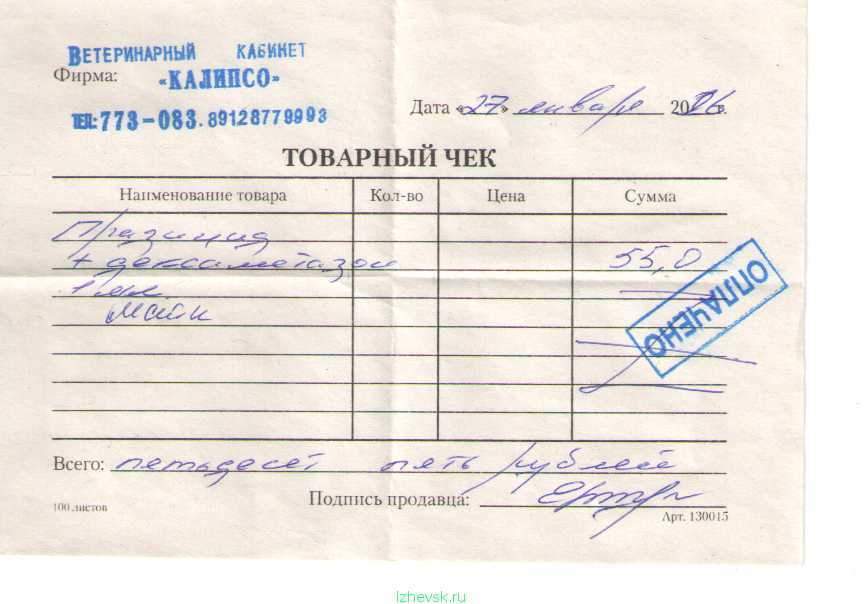 ВЕТЕРИНАРНЫЙ КАБИНЕТ
Фирма: «КАЛИПСО»
ТЕЛ: 773-083. 89128779993
Дата «27» января 2016 г.
ТОВАРНЫЙ ЧЕК
Наименование товара Кол-во Цена Сумма
Празицид
+ дексаметазон 55,0
1 мл.
ОПЛАЧЕНО
Всего: петадесет пять рублей
Подпись продавца:
100 листов
Арт. 130015
Izhevsk.ru